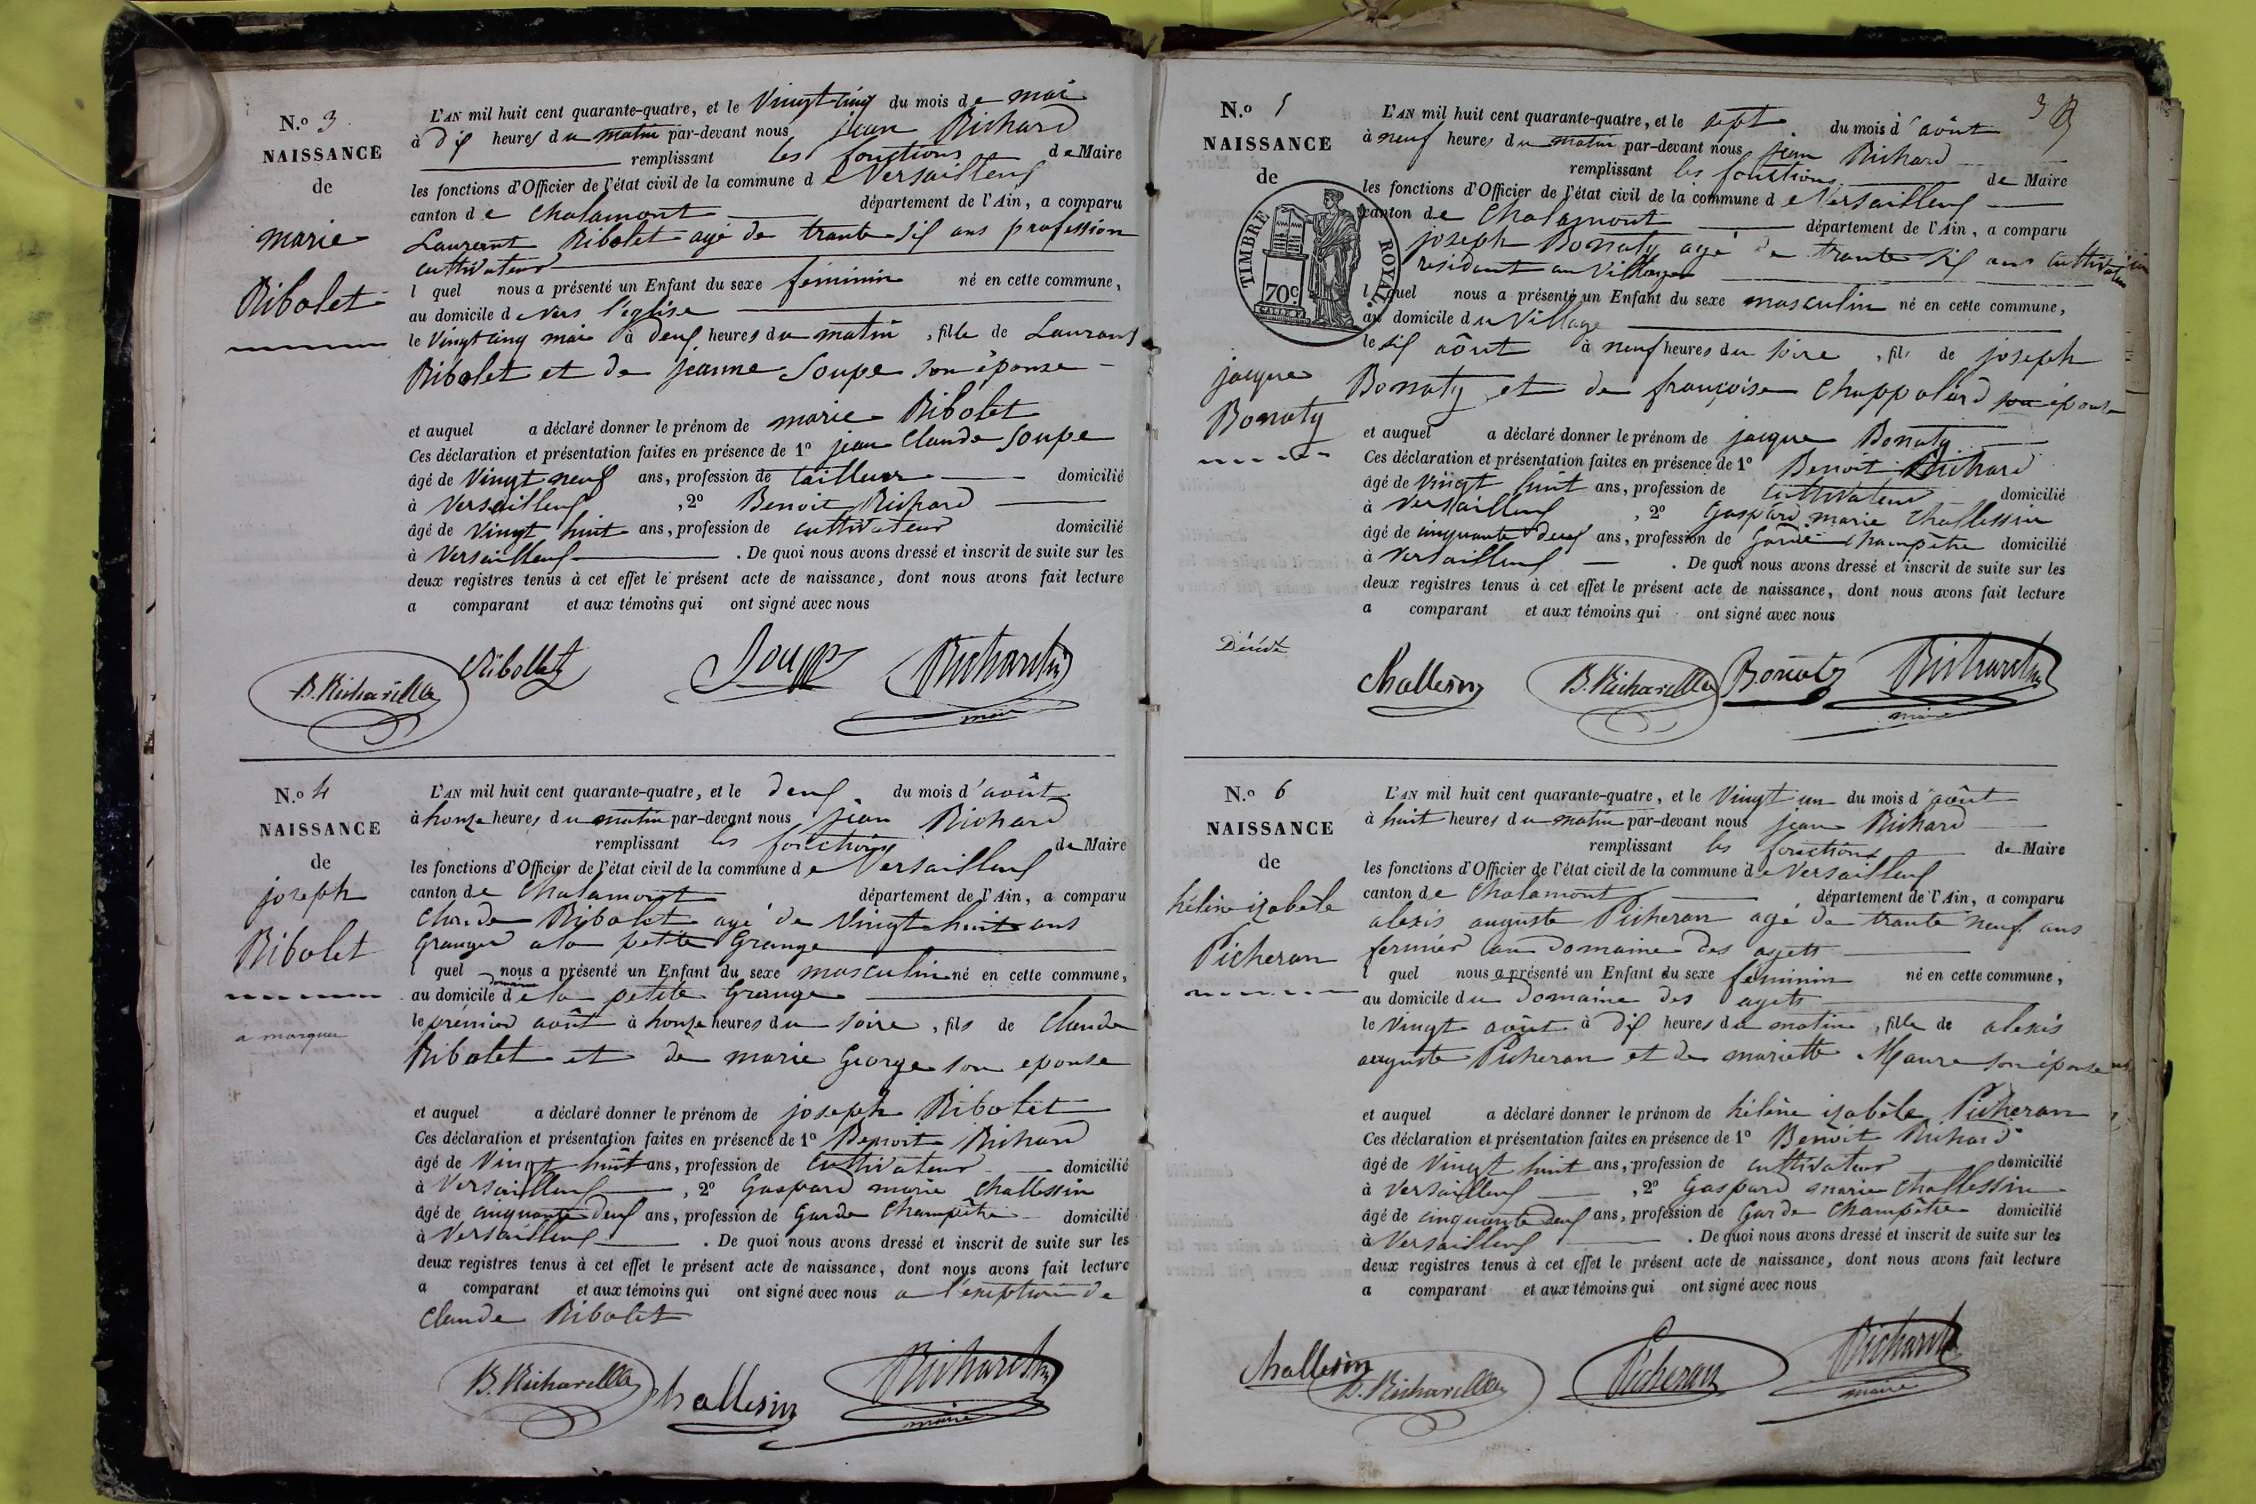 N.o 3
NAISSANCE
de
marie
Ribolet
L'AN mil huit cent quarante-quatre, et le Vingt cinq du mois de mai
à dix heures du matin par-devant nous jean Richard
remplissant les fonctions de Maire
les fonctions d'Officier de l'état civil de la commune de Versailleux
canton de Chalamont département de l'Ain, a comparu
Laurent Ribolet agé de trante six ans profession
cultivateur
l quel nous a présenté un Enfant du sexe féminin né en cette commune,
au domicile de vers l'église
le Vingt cinq mai à deux heures du matin, fille de Laurant
Ribolet et de jeanne Soupe son épouse
et auquel a déclaré donner le prénom de marie Ribolet
Ces déclaration et présentation faites en présence de 1o jean Claude Soupe
âgé de Vingt neuf ans, profession de tailleur domicilié
à Versailleux, 2o Benoit Richard
âgé de Vingt huit ans, profession de cultivateur domicilié
à Versailleux. De quoi nous avons dressé et inscrit de suite sur les
deux registres tenus à cet effet le présent acte de naissance, dont nous avons fait lecture
a comparant et aux témoins qui ont signé avec nous
B. Richard Ribollet Soupe Richard
maire
N.o 4
NAISSANCE
de
joseph
Ribolet
a marquer
L'AN mil huit cent quarante-quatre, et le deux du mois d'août
à honze heures du matin par-devant nous jean Richard
remplissant les fonctions de Maire
les fonctions d'Officier de l'état civil de la commune de Versailleux
canton de Chalamont département de l'Ain, a comparu
Claude Ribolet agé de Vingt huit ans
Granger a la petite Grange
l quel nous a présenté un Enfant du sexe masculin né en cette commune,
domaine
au domicile de la petite Grange
le prémier août à honze heures du soire, fils de Claude
Ribolet et de marie George son epouse
et auquel a déclaré donner le prénom de joseph Ribolet
Ces déclaration et présentation faites en présence de 1o Benoit Richard
âgé de Vingt huit ans, profession de cultivateur domicilié
à Versailleux, 2o Gaspard marie Challessin
âgé de cinquante deux ans, profession de Garde Champêtre domicilié
à Versailleux. De quoi nous avons dressé et inscrit de suite sur les
deux registres tenus à cet effet le présent acte de naissance, dont nous avons fait lecture
a comparant et aux témoins qui ont signé avec nous a l'éxeption de
Claude Ribolet
B. Richard Challesin Richard
maire
3
N.o 5
NAISSANCE
de
TIMBRE ROYAL
70c
jacque
Bonaty
Décédé
L'AN mil huit cent quarante-quatre, et le sept du mois d'août
à neuf heures du matin par-devant nous jean Richard
remplissant les fonctions de Maire
les fonctions d'Officier de l'état civil de la commune de Versailleux
canton de Chalamont département de l'Ain, a comparu
joseph Bonaty agé de trante six ans cultivateur
residant au Village
l quel nous a présenté un Enfant du sexe masculin né en cette commune,
au domicile du Village
le six août à neuf heures du soire, fils de joseph
Bonaty et de françoise Chappolard son épouse
et auquel a déclaré donner le prénom de jacque Bonaty
Ces déclaration et présentation faites en présence de 1o Benoit Richard
âgé de Vingt huit ans, profession de cultivateur domicilié
à Versailleux, 2o Gaspard marie Challessin
âgé de cinquante deux ans, profession de Garde Champêtre domicilié
à Versailleux. De quoi nous avons dressé et inscrit de suite sur les
deux registres tenus à cet effet le présent acte de naissance, dont nous avons fait lecture
a comparant et aux témoins qui ont signé avec nous
Challesin B. Richard Bonaty Richard
maire
N.o 6
NAISSANCE
de
hélène izabele
Picheran
L'AN mil huit cent quarante-quatre, et le Vingt un du mois d'août
à huit heures du matin par-devant nous jean Richard
remplissant les fonctions de Maire
les fonctions d'Officier de l'état civil de la commune de Versailleux
canton de Chalamont département de l'Ain, a comparu
alexis auguste Picheran agé de trante neuf ans
fermier au domaine des agets
l quel nous a présenté un Enfant du sexe féminin né en cette commune,
au domicile du domaine des agets
le Vingt août à dix heures du matin, fille de alexis
auguste Picheran et de mariette Maure son épouse
et auquel a déclaré donner le prénom de hélène izabèle Picheran
Ces déclaration et présentation faites en présence de 1o Benoit Richard
âgé de Vingt huit ans, profession de cultivateur domicilié
à Versailleux, 2o Gaspard marie Challessin
âgé de cinquante deux ans, profession de Garde Champêtre domicilié
à Versailleux. De quoi nous avons dressé et inscrit de suite sur les
deux registres tenus à cet effet le présent acte de naissance, dont nous avons fait lecture
a comparant et aux témoins qui ont signé avec nous
Challesin B. Richard Picheran Richard
maire